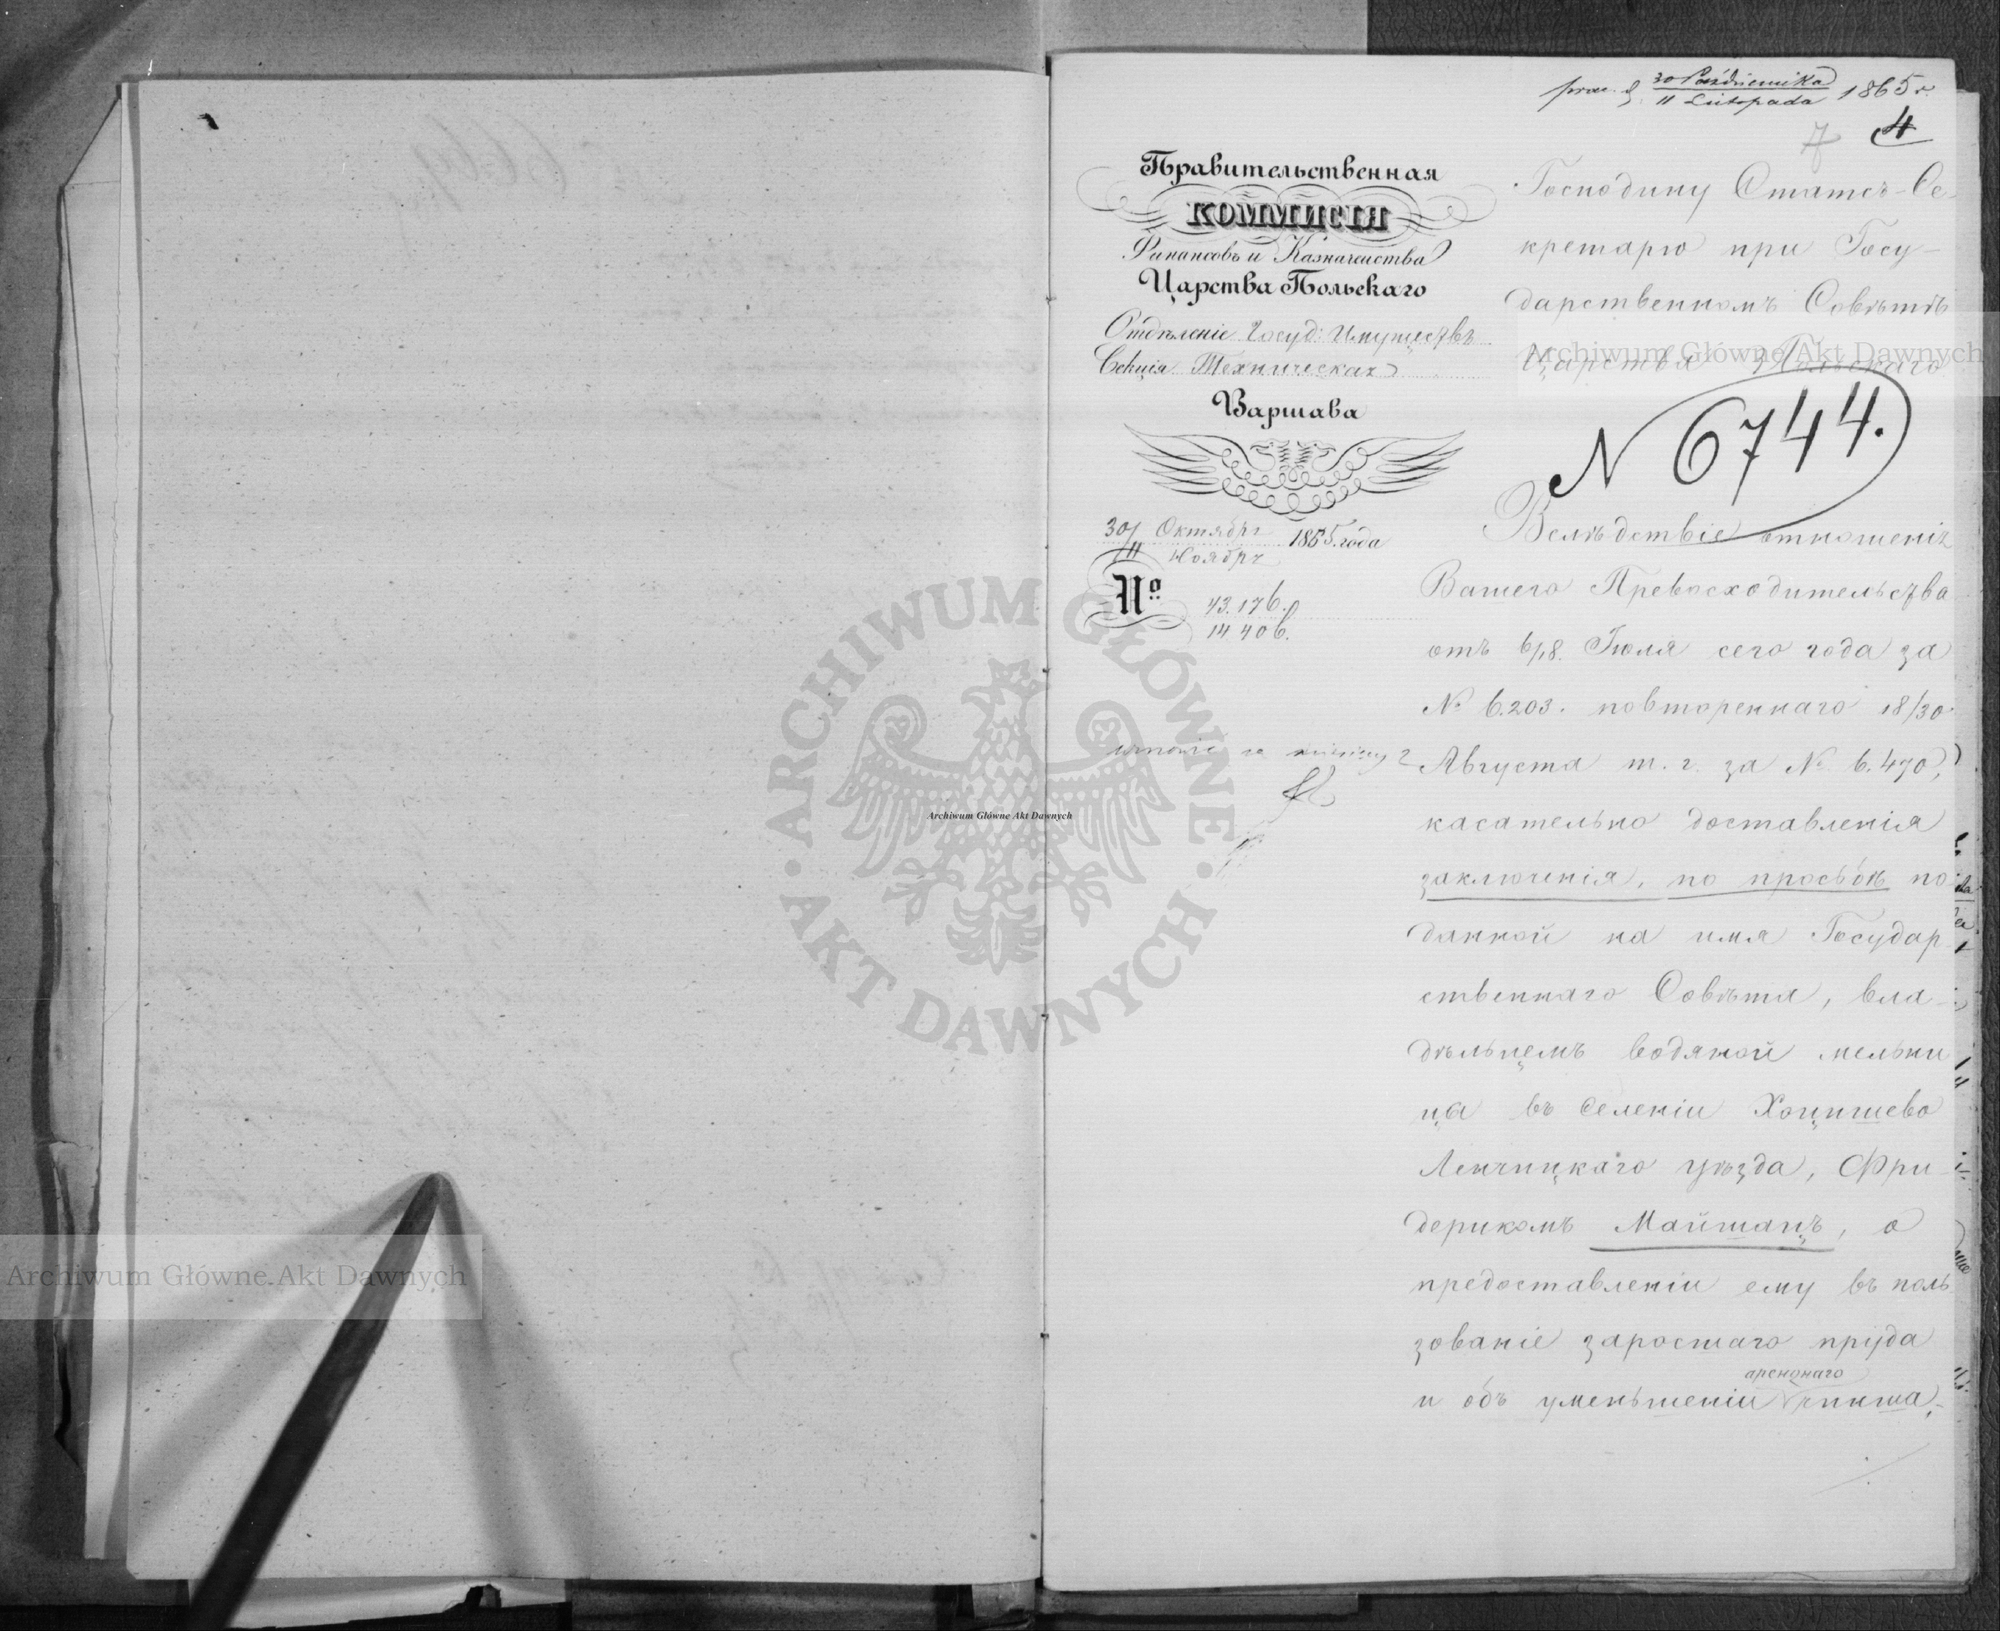 30 Października
11 Listopada 1865 r.
4
7
Правительственная
КОММИСІЯ
Финансовъ и Казначейства
Царства Польскаго
Отдѣленіе Госуд: Имуществъ
Секція Техническая
Варшава
30/11 Октября
Ноября 1865 года
№ 43.176.
14.406.
Господину Статсъ-Се-
кретарю при Госу-
дарственномъ Совѣтѣ
Царства Польскаго
N 6744.
Вслѣдствіе отношенія
Вашего Превосходительства
отъ 6/18. Іюля сего года за
№ 6.203. повтореннаго 18/30
Августа т. г. за № 6.470,
касательно доставленія
заключенія, по просьбѣ по
данной на имя Государ
ственнаго Совѣта, вла-
дѣльцемъ водяной мельни
ца въ Селеніи Хоцишево
Ленчицкаго уѣзда, Фри
дерикомъ Майшацъ, о
предоставленіи ему въ поль
зованіе заросшаго пруда
и объ уменьшеніи аренднаго чинша,
Archiwum Główne Akt Dawnych
Archiwum Główne Akt Dawnych
Archiwum Główne Akt Dawnych
ARCHIWUM GŁÓWNE
AKT DAWNYCH